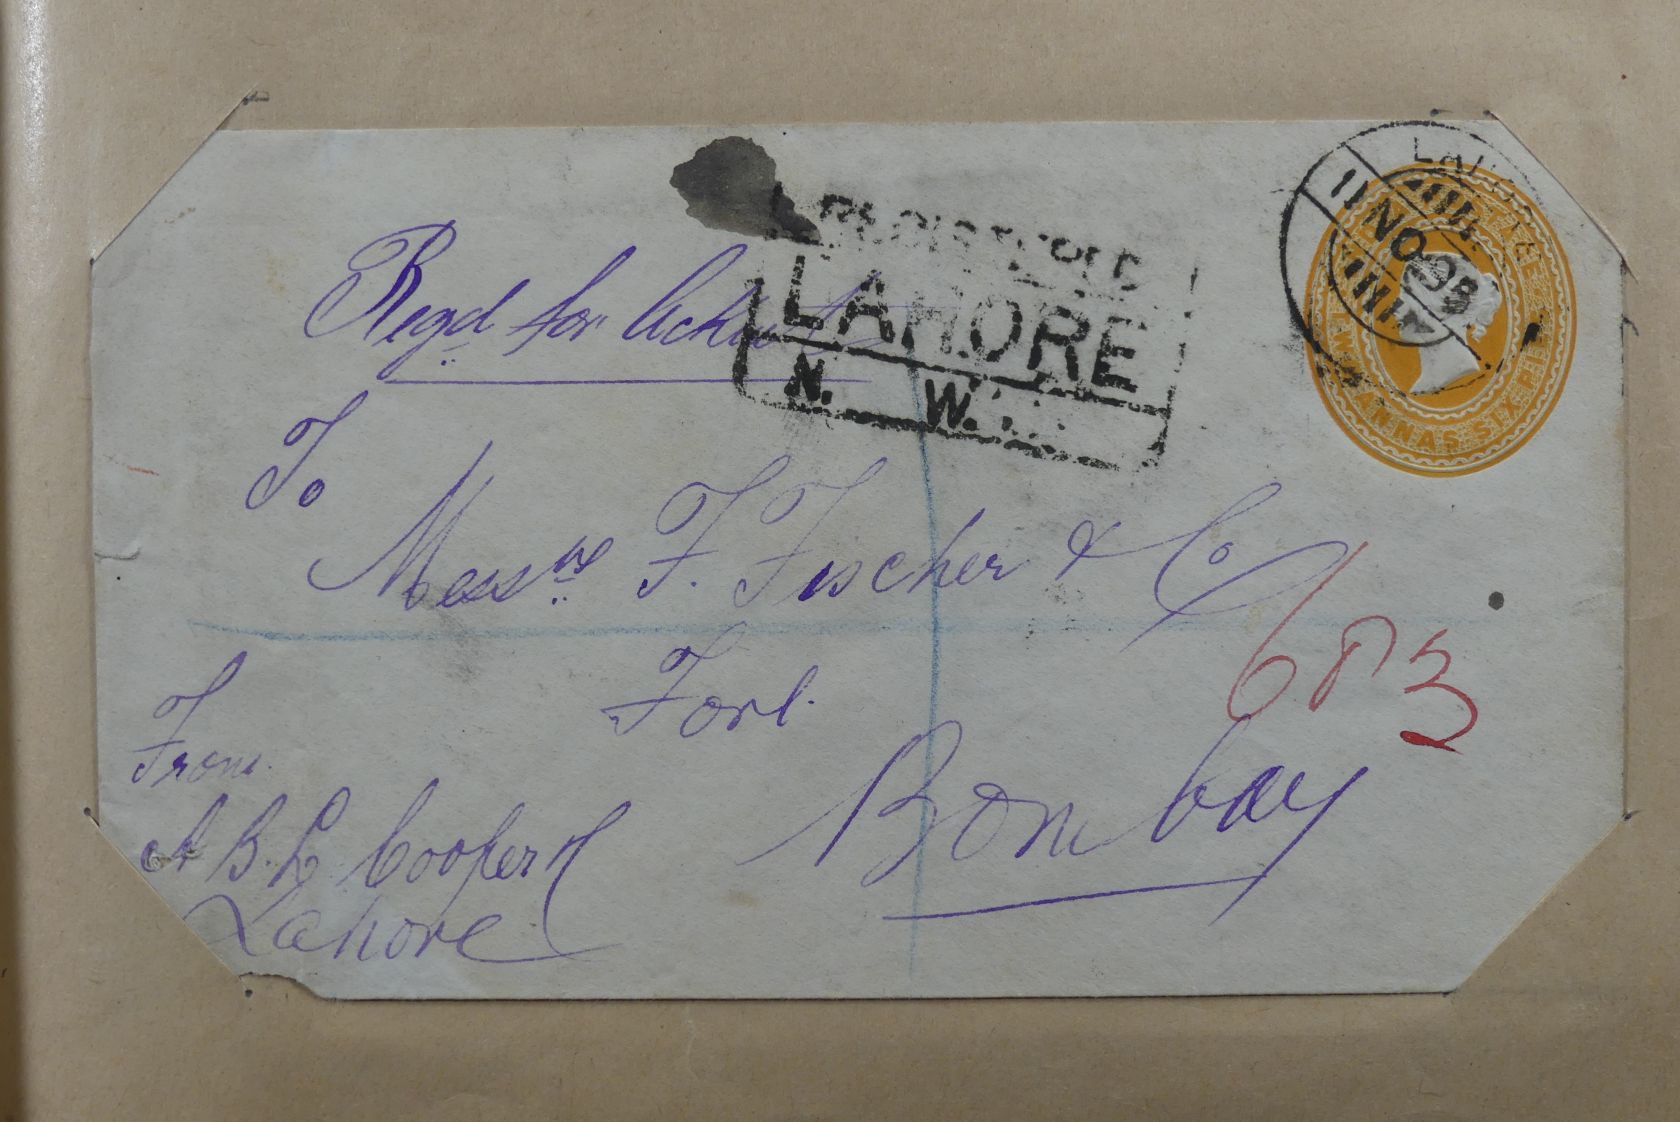 REGISTERED
LAHORE
N. W.
LAHORE
11 NO 98
TWO ANNAS SIX PIES
Regd for Ackt
To
Messrs F. Fischer & Co
Fort.
Bombay
683
From
A B. L Cooper
Lahore